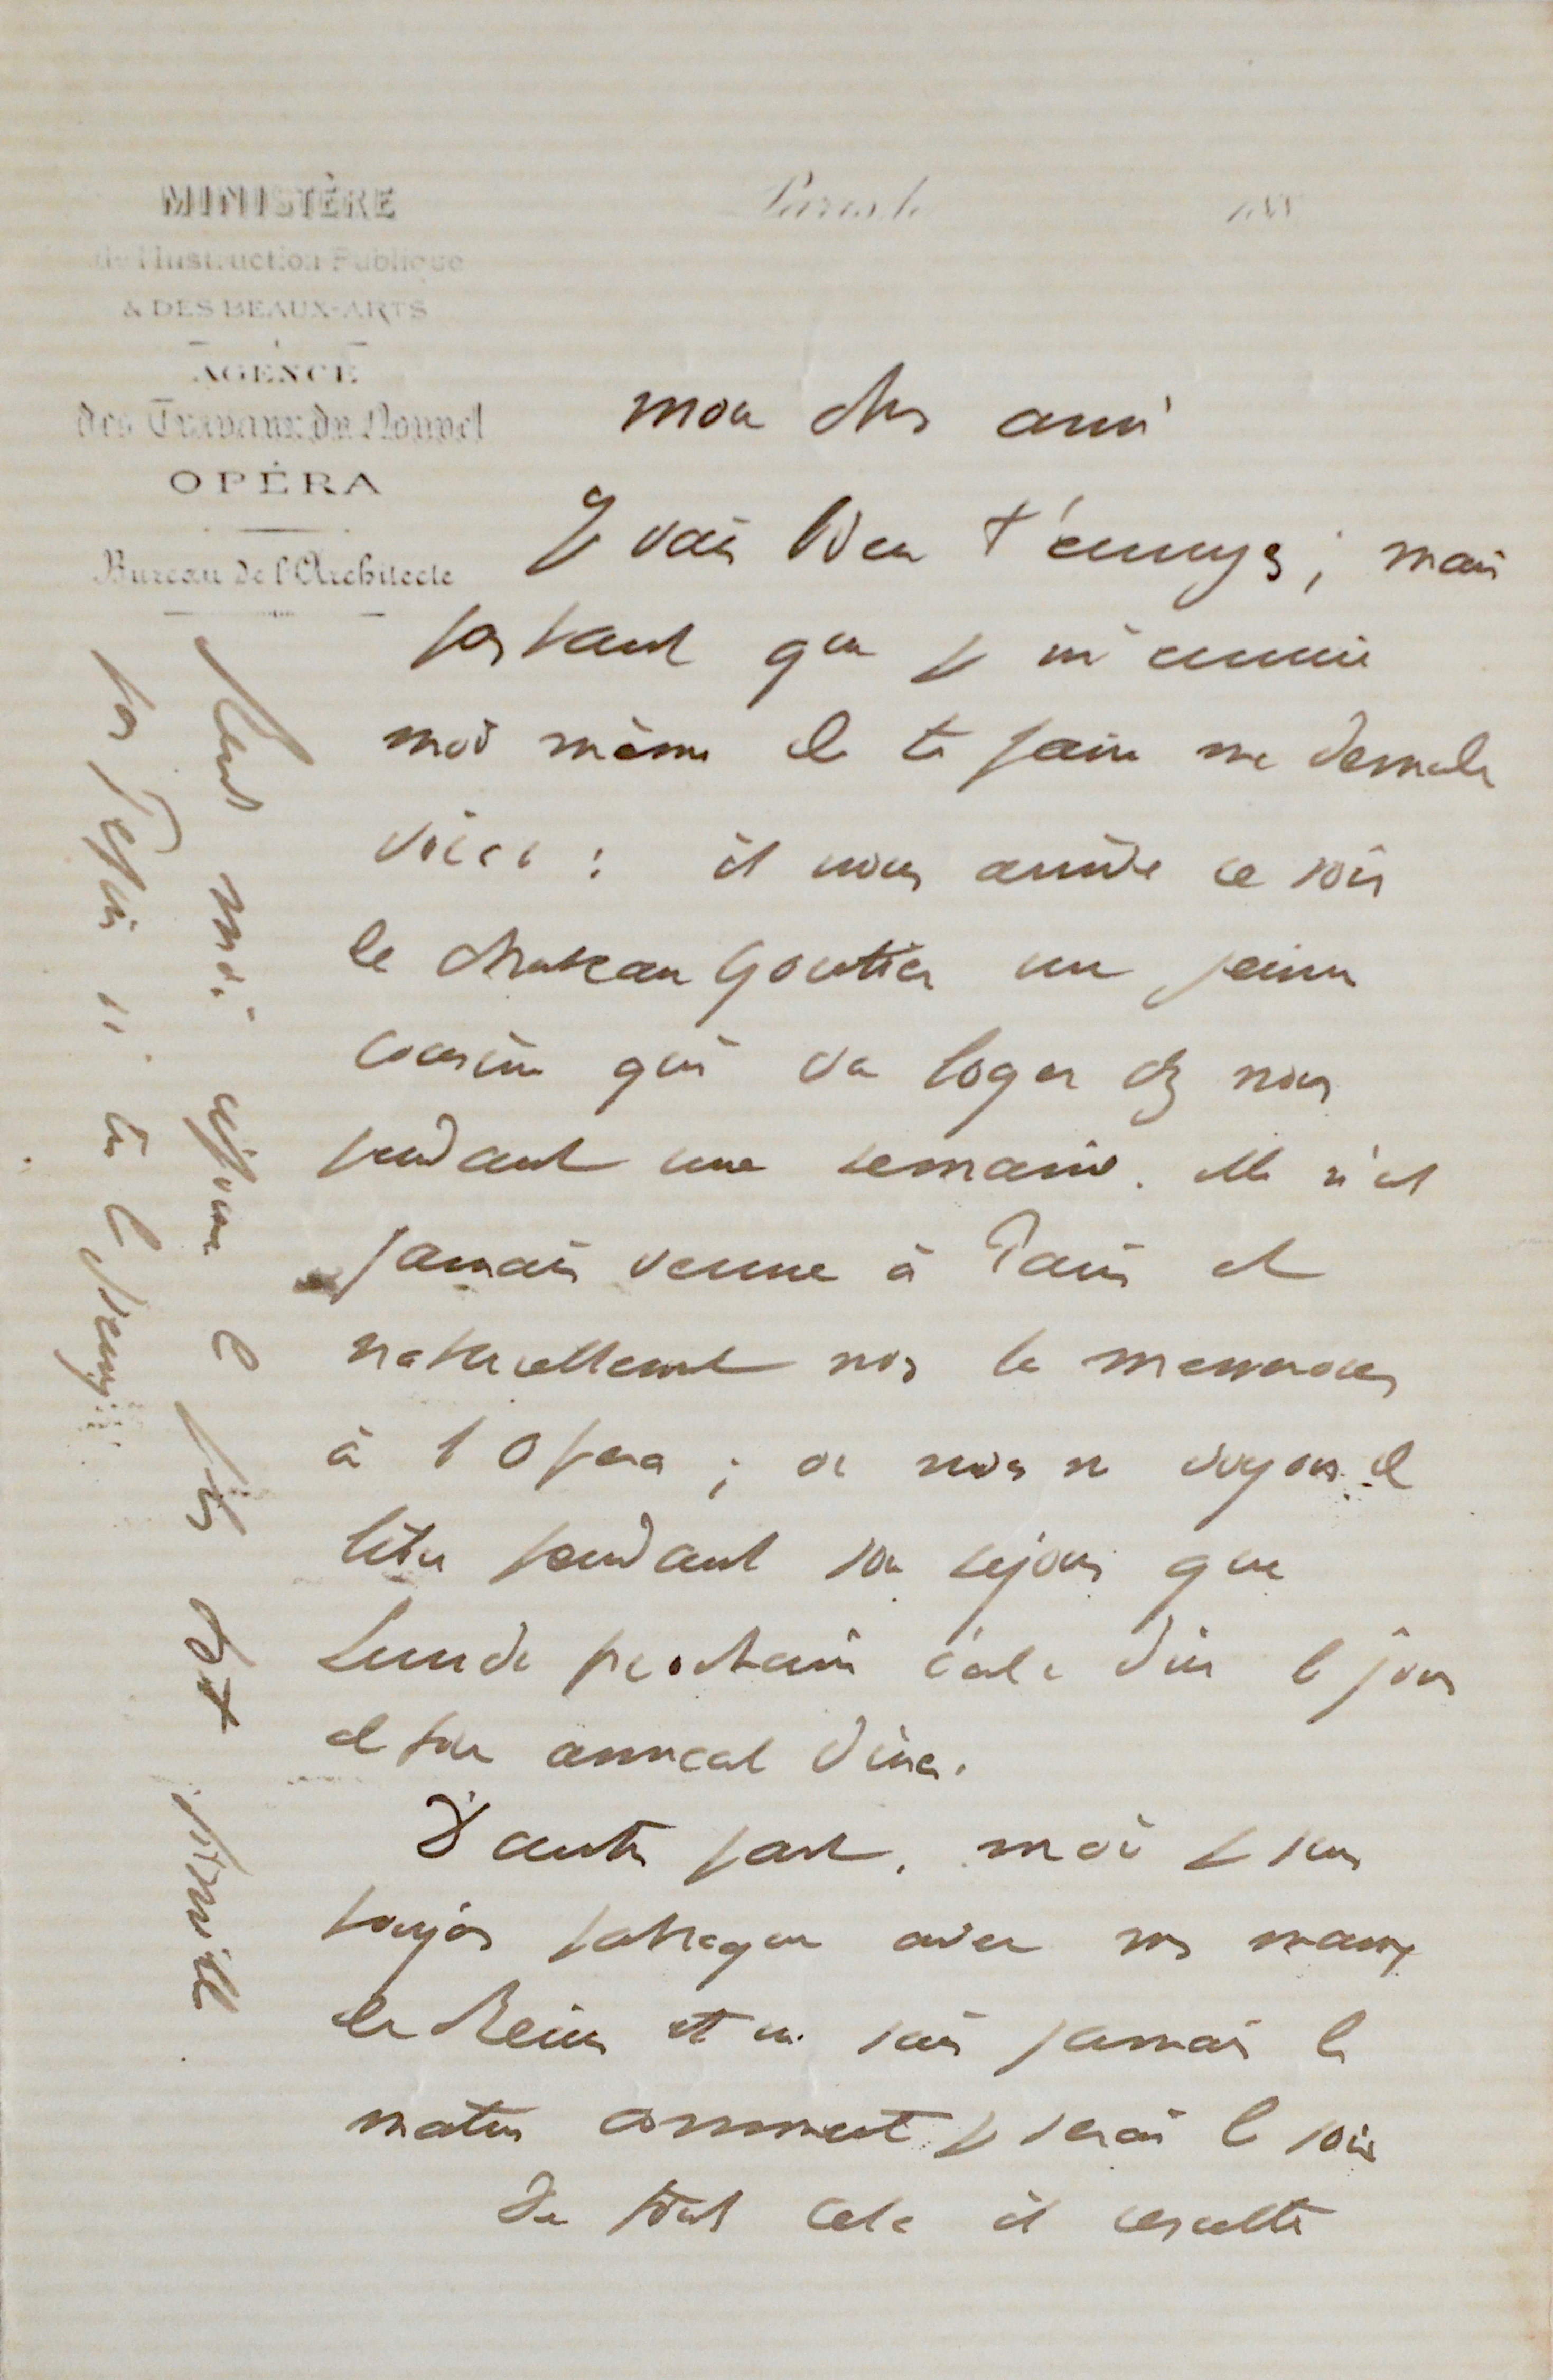 MINISTÈRE
de l'Instruction Publique
& DES BEAUX-ARTS
AGENCE
des Travaux du Nouvel
OPÉRA
Bureau de l'Architecte
Paris, le 188
mon cher ami
Je vais bien t'ennuyer ; mais
pas tant que je m'ennuie
moi même de te faire ma demande
voici : il nous arrive ce soir
de Chateau Gontier une jeune
cousine qui va loger chez nous
pendant une semaine. elle n'est
jamais venue à Paris et
naturellement nous la mennerons
à l'Opera ; or nous ne voyons de
libre pendant son sejour que
Lundi prochain c'est a dire le jour
de ton amical diner.
D'autre part, moi je suis
toujours patraque avec mes maux
de Reins et ne sais jamais le
matin comment je serai le soir
De tout cela il resulte